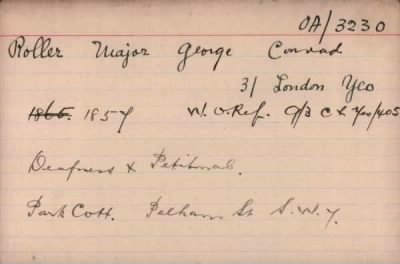 OA/3230
Roller Major George Conrad
3/ London Yeo
1865. 1857 W.O. Ref. 9/3 C L Yeo/405
Deafness & Petitmal.
Park Cott. Pelham St S.W.7.